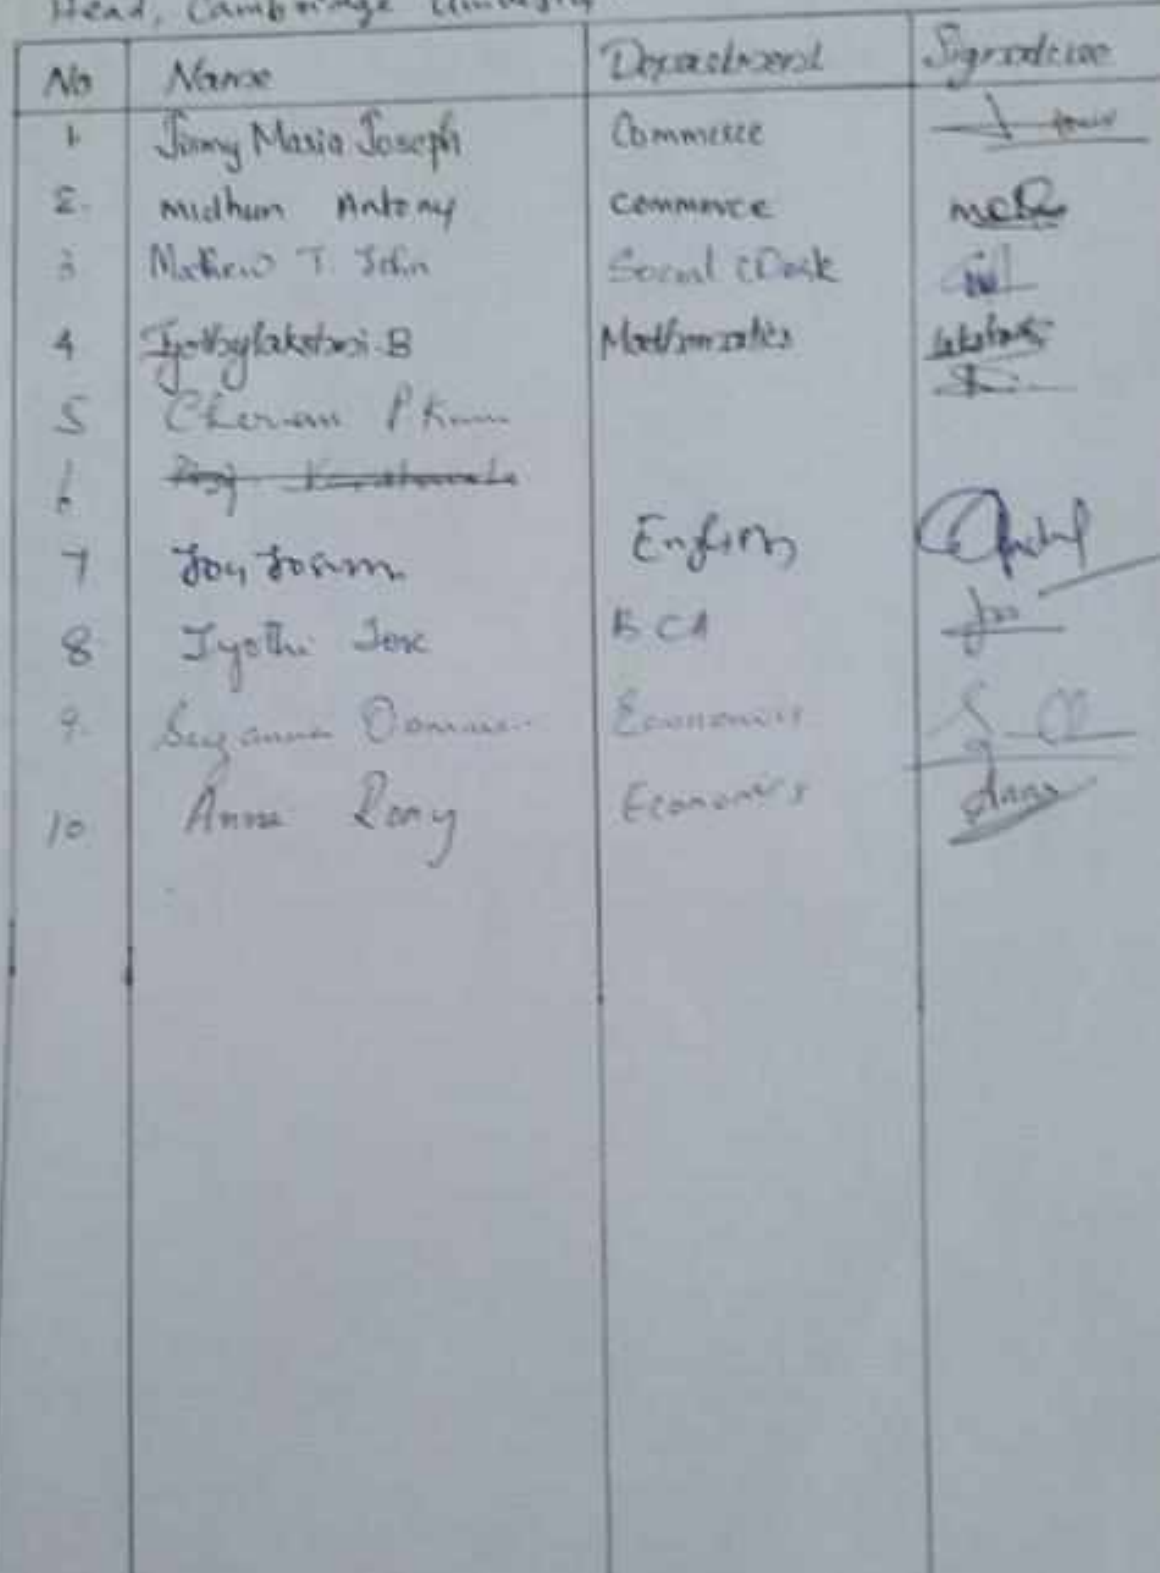 Head, Cambridge University
No Name Department Signature
1. Jismy Maria Joseph Commerce
2. Midhun Antony Commerce
3 Mathew T. John Social Work
4 Jyothylakshmi B Mathematics Lakshmi
5 Cherian P
6
7 Joy English
8 Jyothi Jose BCA
9. Suzanna Oommen Economics
10 Anna Rony Economics Anna